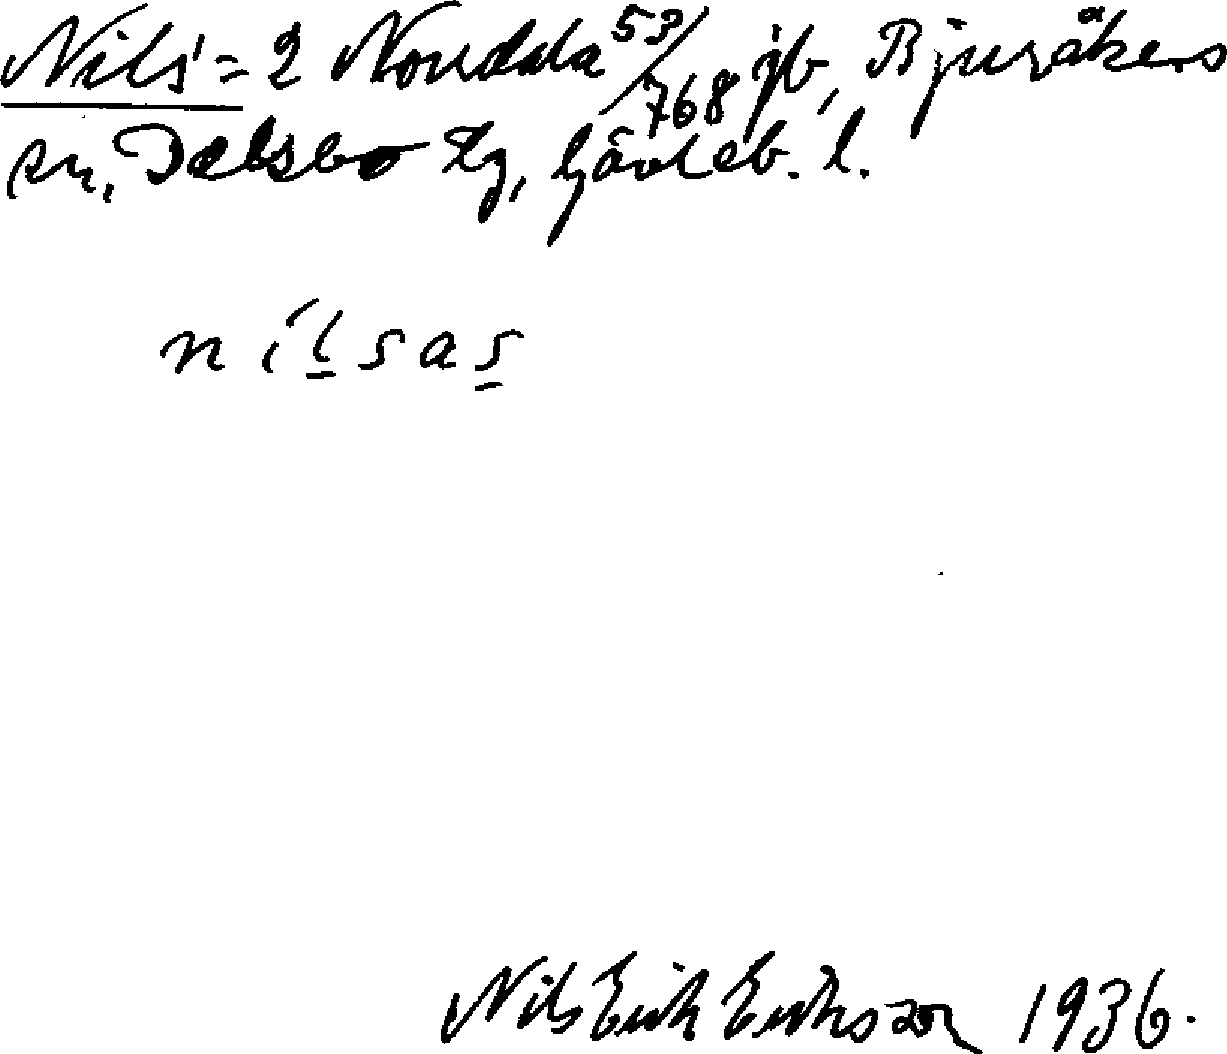 Nils' = 2 Norrdala 53/768 jb, Bjuråkers
sn, Delsbo tg, Gävleb. l.
nílsas
Nils Erik Eriksson 1936.